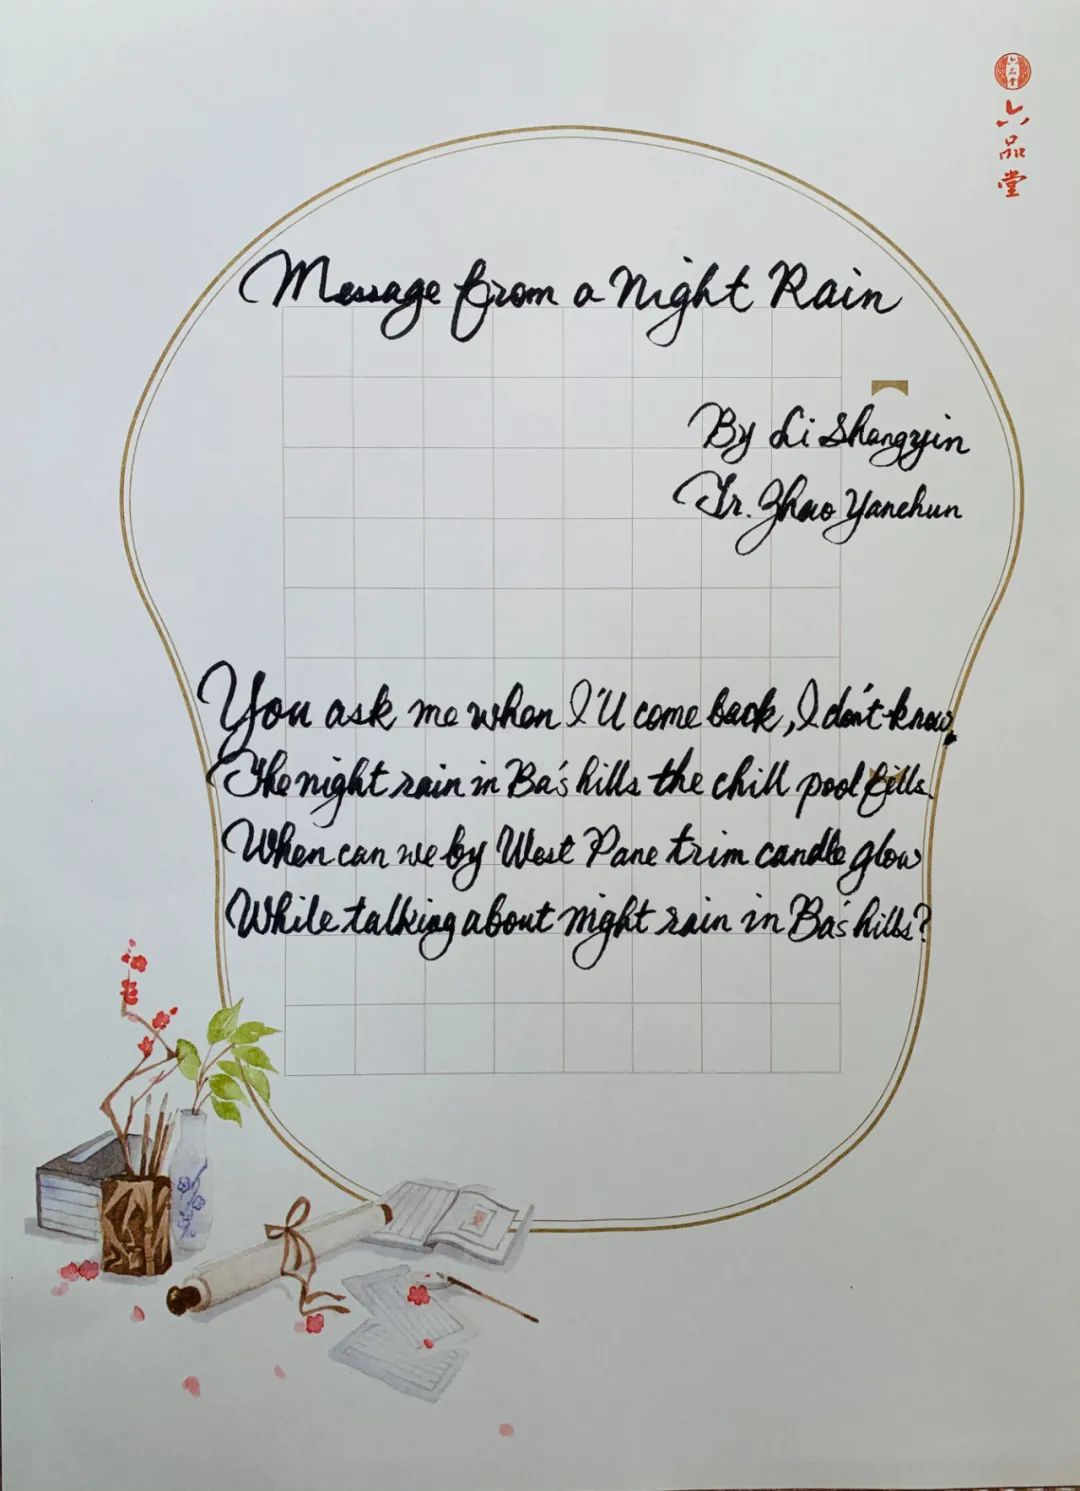 六品堂
六品堂
Message from a Night Rain
By Li Shangyin
Tr. Zhao Yanchun
You ask me when I'll come back, I don't know.
The night rain in Ba's hills the chill pool fills.
When can we by West Pane trim candle glow
While talking about night rain in Ba's hills?